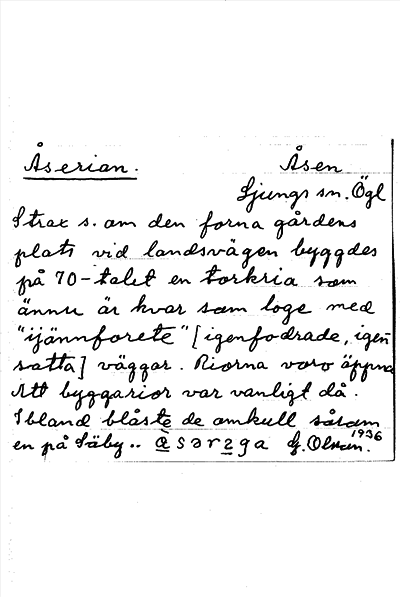 Åserian. Åsen
Ljungs sn. Ögl
Strax s. om den forna gårdens
plats vid landsvägen byggdes
på 70-talet en torkria som
ännu är kvar som loge med
"ijännforete" [igenfodrade, igen
satta] väggar. Riorna voro öppna
Att bygga rior var vanligt då.
Ibland blåste de omkull såsom
en på Säby..
G. Olson. 1936